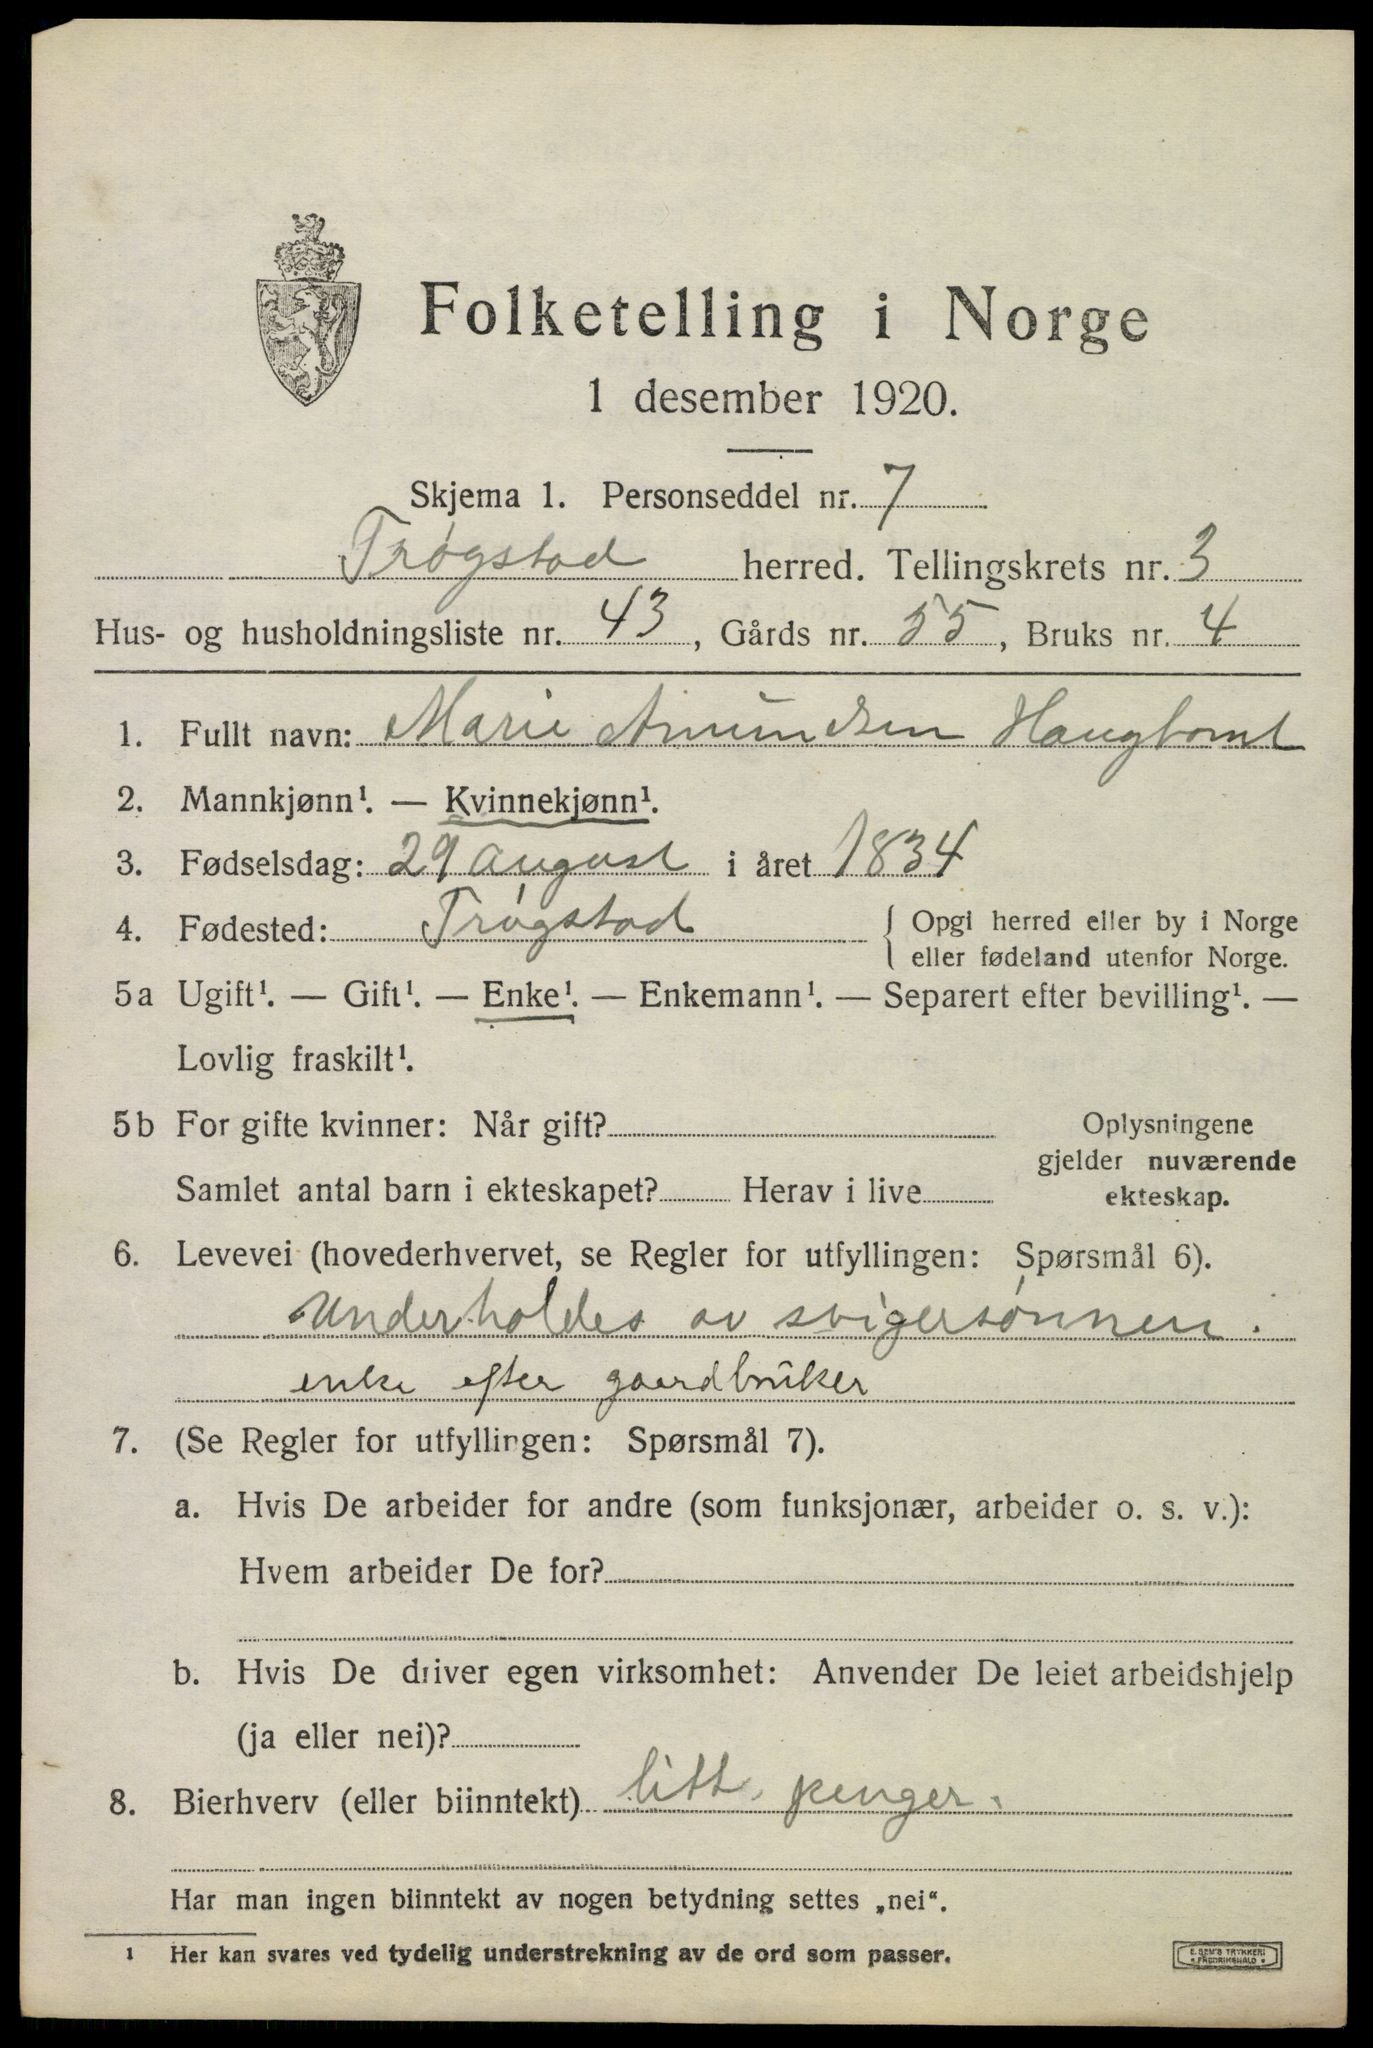 Folketelling i Norge
1 desember 1920.
Skjema 1. Personseddel nr. 7
Trøgstad herred. Tellingskrets nr. 3
Hus- og husholdningsliste nr. 43, Gårds nr. 55, Bruks nr. 4
1. Fullt navn: Marie Amundsen Haugtomt
2. Mannkjønn¹. — Kvinnekjønn¹.
3. Fødselsdag: 29 august i året 1834
4. Fødested: Trøgstad { Opgi herred eller by i Norge
eller fødeland utenfor Norge.
5a Ugift¹. — Gift¹. — Enke¹. — Enkemann¹. — Separert efter bevilling¹. —
Lovlig fraskilt¹.
5b For gifte kvinner: Når gift?
Samlet antal barn i ekteskapet? Herav i live
Oplysningene
gjelder nuværende
ekteskap.
6. Levevei (hovederhvervet, se Regler for utfyllingen: Spørsmål 6).
Underholdes av svigersønnen.
enke efter gaardbruker
7. (Se Regler for utfyllingen: Spørsmål 7).
a. Hvis De arbeider for andre (som funksjonær, arbeider o. s. v.):
Hvem arbeider De for?
b. Hvis De driver egen virksomhet: Anvender De leiet arbeidshjelp
(ja eller nei)?
8. Bierhverv (eller biinntekt) litt penger.
Har man ingen biinntekt av nogen betydning settes „nei“.
1 Her kan svares ved tydelig understrekning av de ord som passer.
E. SEM'S TRYKKERI
• FREDRIKSHALD •